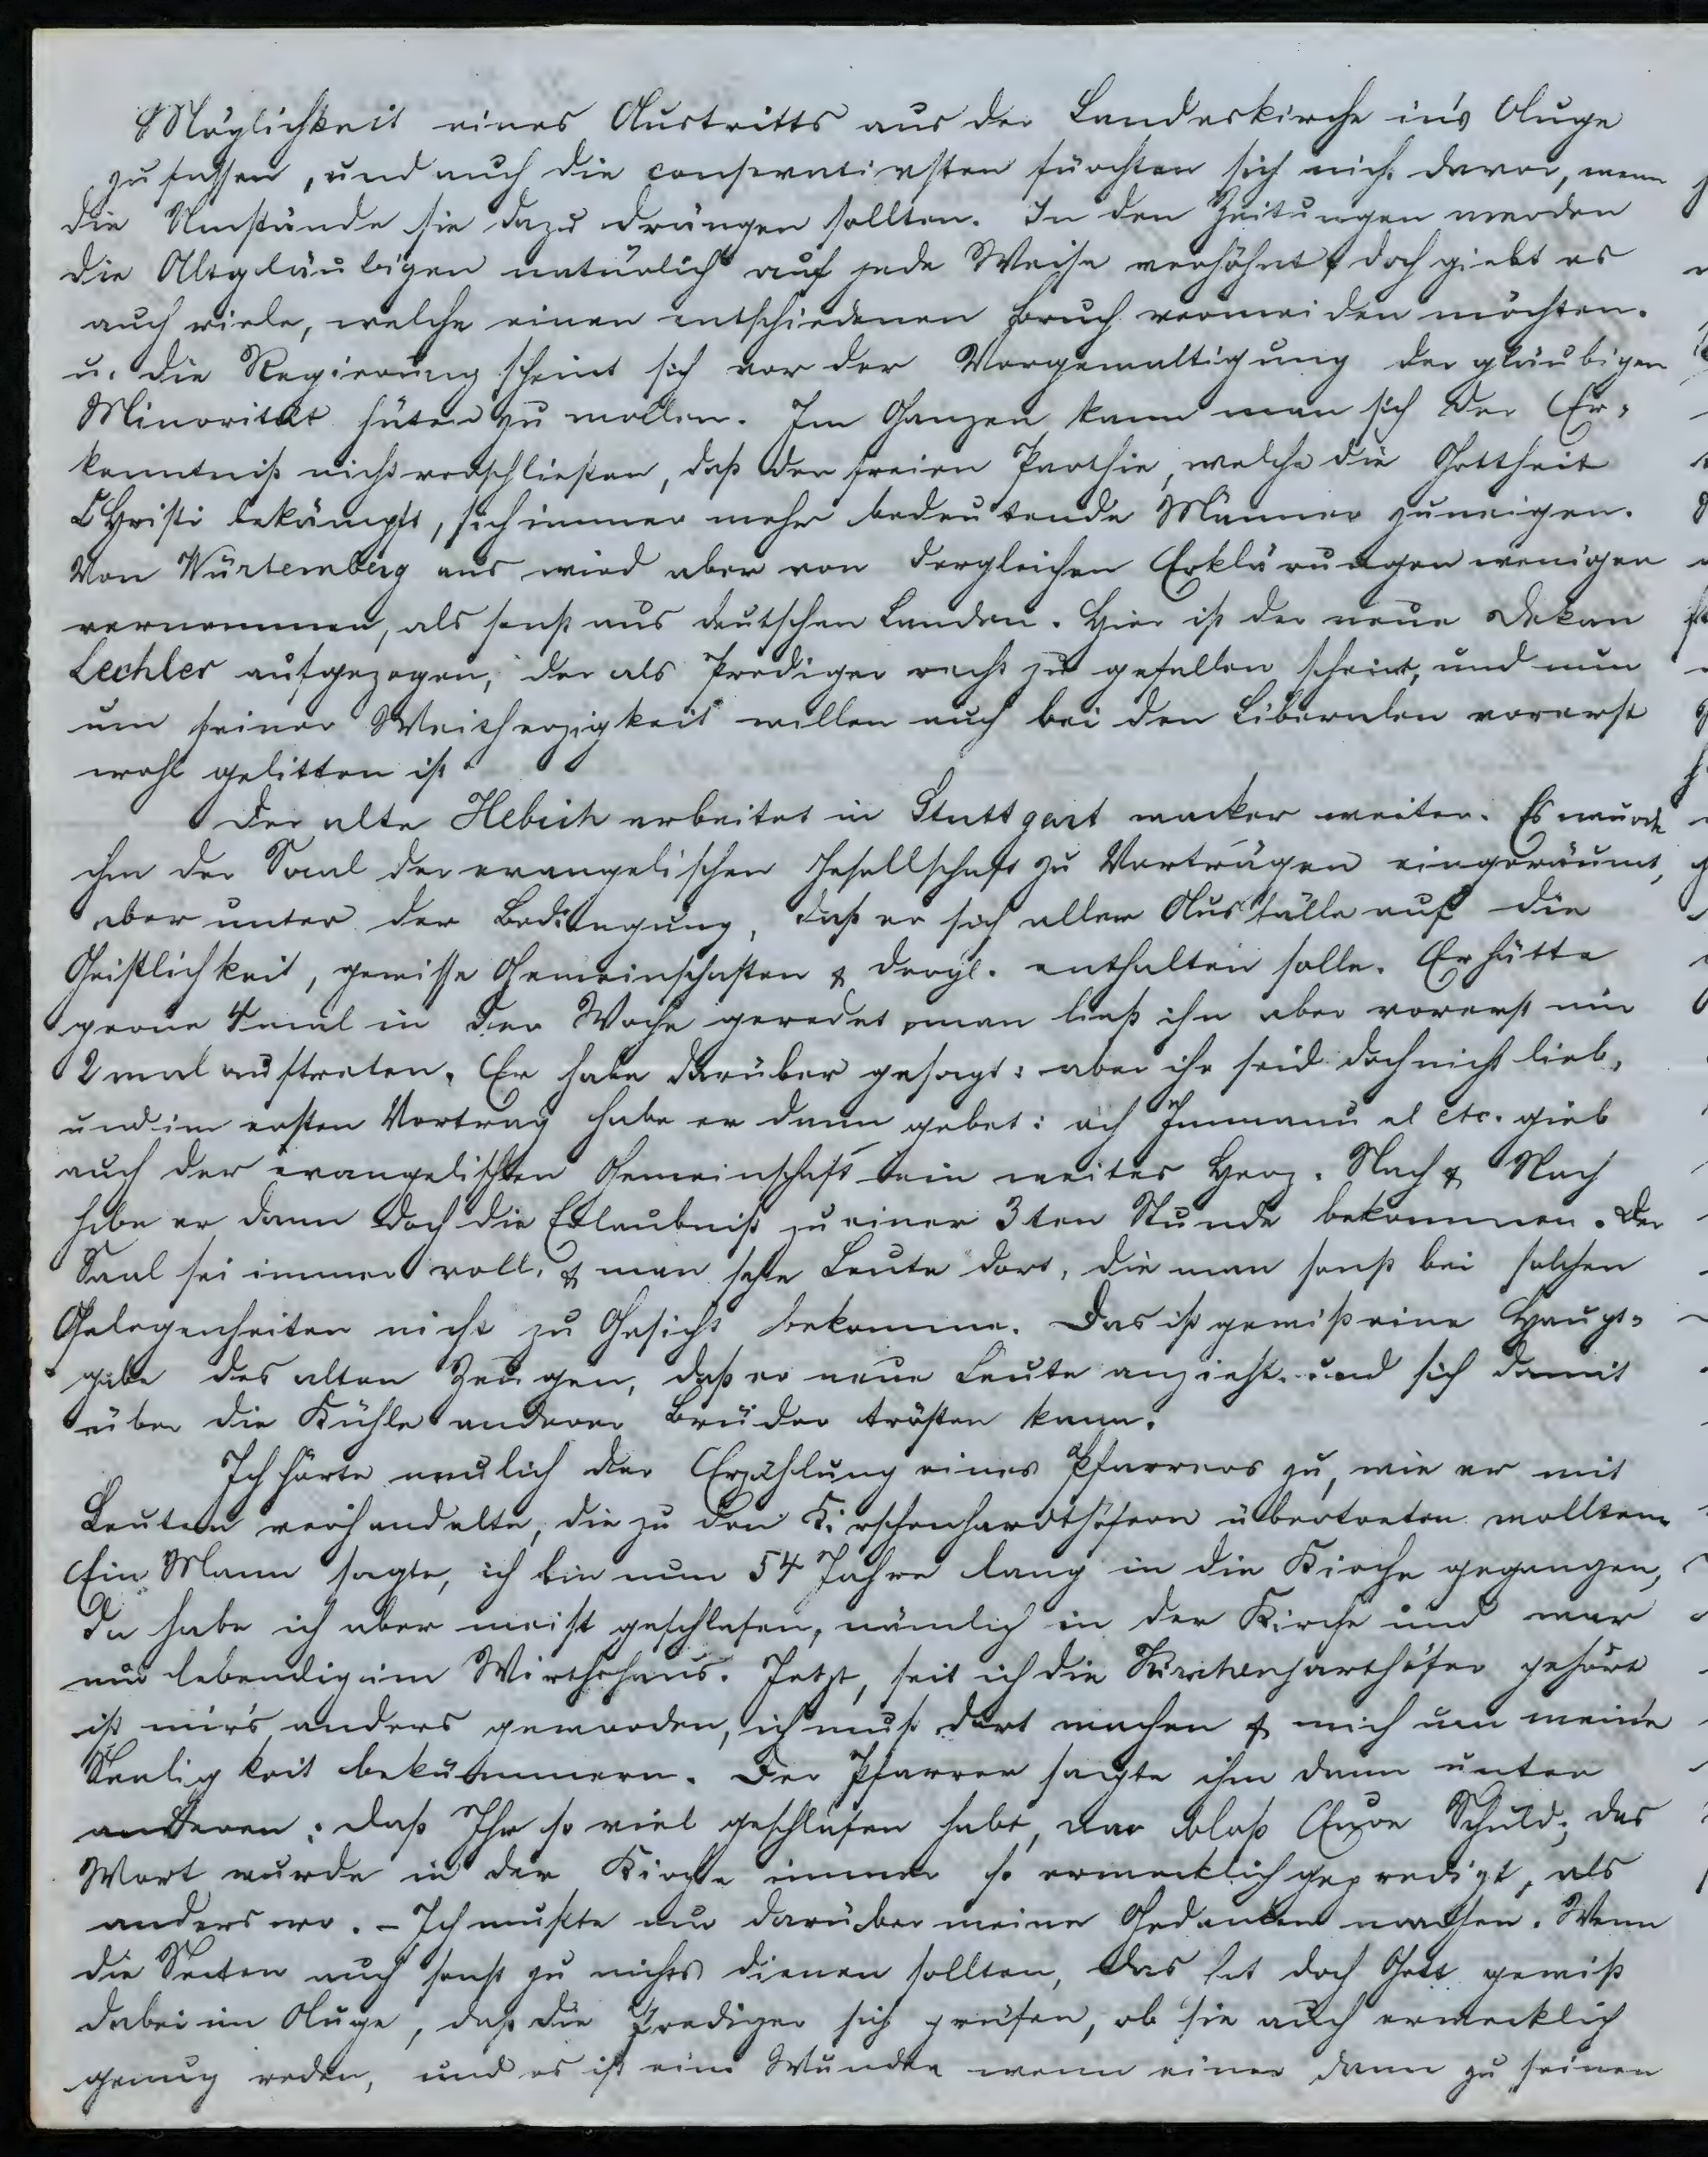 Möglichkeit eines Austritts aus der Landeskirche in's Auge
zu fassen, und auch die conservativsten fürchten sich nicht davor, wenn
die Umstände sie dazu drängen sollten. In den Zeitungen werden
die Altgläubigen natürlich auf jede Weise verhöhnt, doch giebt es
auch viele, welche einen entschiedenen Bruch vermeiden möchten.
u. die Regierung scheint sich vor der Vergewaltigung der gläubigen
Minorität hüten zu wollen. Im Ganzen kann man sich der Er-
kenntniß nicht verschließen, daß der freien Parthie, welche die Gottheit
Christi bekämpft, sich immer mehr bedeutende Männer zuneigen.
Von Würtemberg aus wird aber von dergleichen Erklärungen weniger
vernommen, als sonst aus deutschen Landen. Hier ist der neue Dekan
Lechler aufgezogen, der als Prediger recht zu gefallen scheint, und nun
um seiner Weitherzigkeit willen auch bei den Liberalen vorerst
wohl gelitten ist.
Der alte Hebich arbeitet in Stuttgart wacker weiter. Es wurde
ihm der Saal der evangelischen Gesellschaft zu Vorträgen eingeräumt,
aber unter der Bedingung, daß er sich aller Ausfälle auf die
Geistlichkeit, gewisse Gemeinschaften & dergl. enthalten solle. Er hätte
gerne 4mal in der Woche geredet, man ließ ihn aber vorerst nur
2 mal auftreten. Er habe darüber gesagt: aber ihr seid doch nicht lieb,
und im ersten Vortrag habe er dann gebet: ach Immanuel etc. gieb
auch der evangelischen Gemeinschaft ein weites Herz. Nach & Nach
habe er dann doch die Erlaubniß zu einer 3ten Stunde bekommen. Der
Saal sei immer voll, & man sehe Leute dort, die man sonst bei solchen
Gelegenheiten nicht zu Gesicht bekomme. Das ist gewiß eine Haupt-
gabe des alten Zeugen, daß er neue Leute anzieht und sich damit
über die Kühle anderer Brüder trösten kann.
Ich hörte neulich der Erzählung eines Pfarrers zu, wie er mit
Leuten verhandelte, die zu den Kirschenhardthöfern übertreten wollten.
Ein Mann sagte, ich bin nun 54 Jahre lang in die Kirche gegangen,
da habe ich aber meist geschlafen, nämlich in der Kirche und war
nur lebendig im Wirthshaus. Jetzt, seit ich die Kirschenharthöfer gehört
ist mir's anders geworden, ich muß dort wachen & mich um meine
Seeligkeit bekümmern. Der Pfarrer sagte ihm dann unter
anderen: daß Ihr so viel geschlafen habt, war bloß Eure Schuld; das
Wort wurde in der Kirche immer so erwecklich gepredigt, als
anderswo. - Ich mußte nur darüber meine Gedanken machen. Wenn
die Secten auch sonst zu nichts dienen sollten, das hat doch Gott gewiß
dabei im Auge, daß die Prediger sich prüfen, ob sie auch erwecklich
genug reden, und es ist ein Wunder wenn einer dann zu seinen